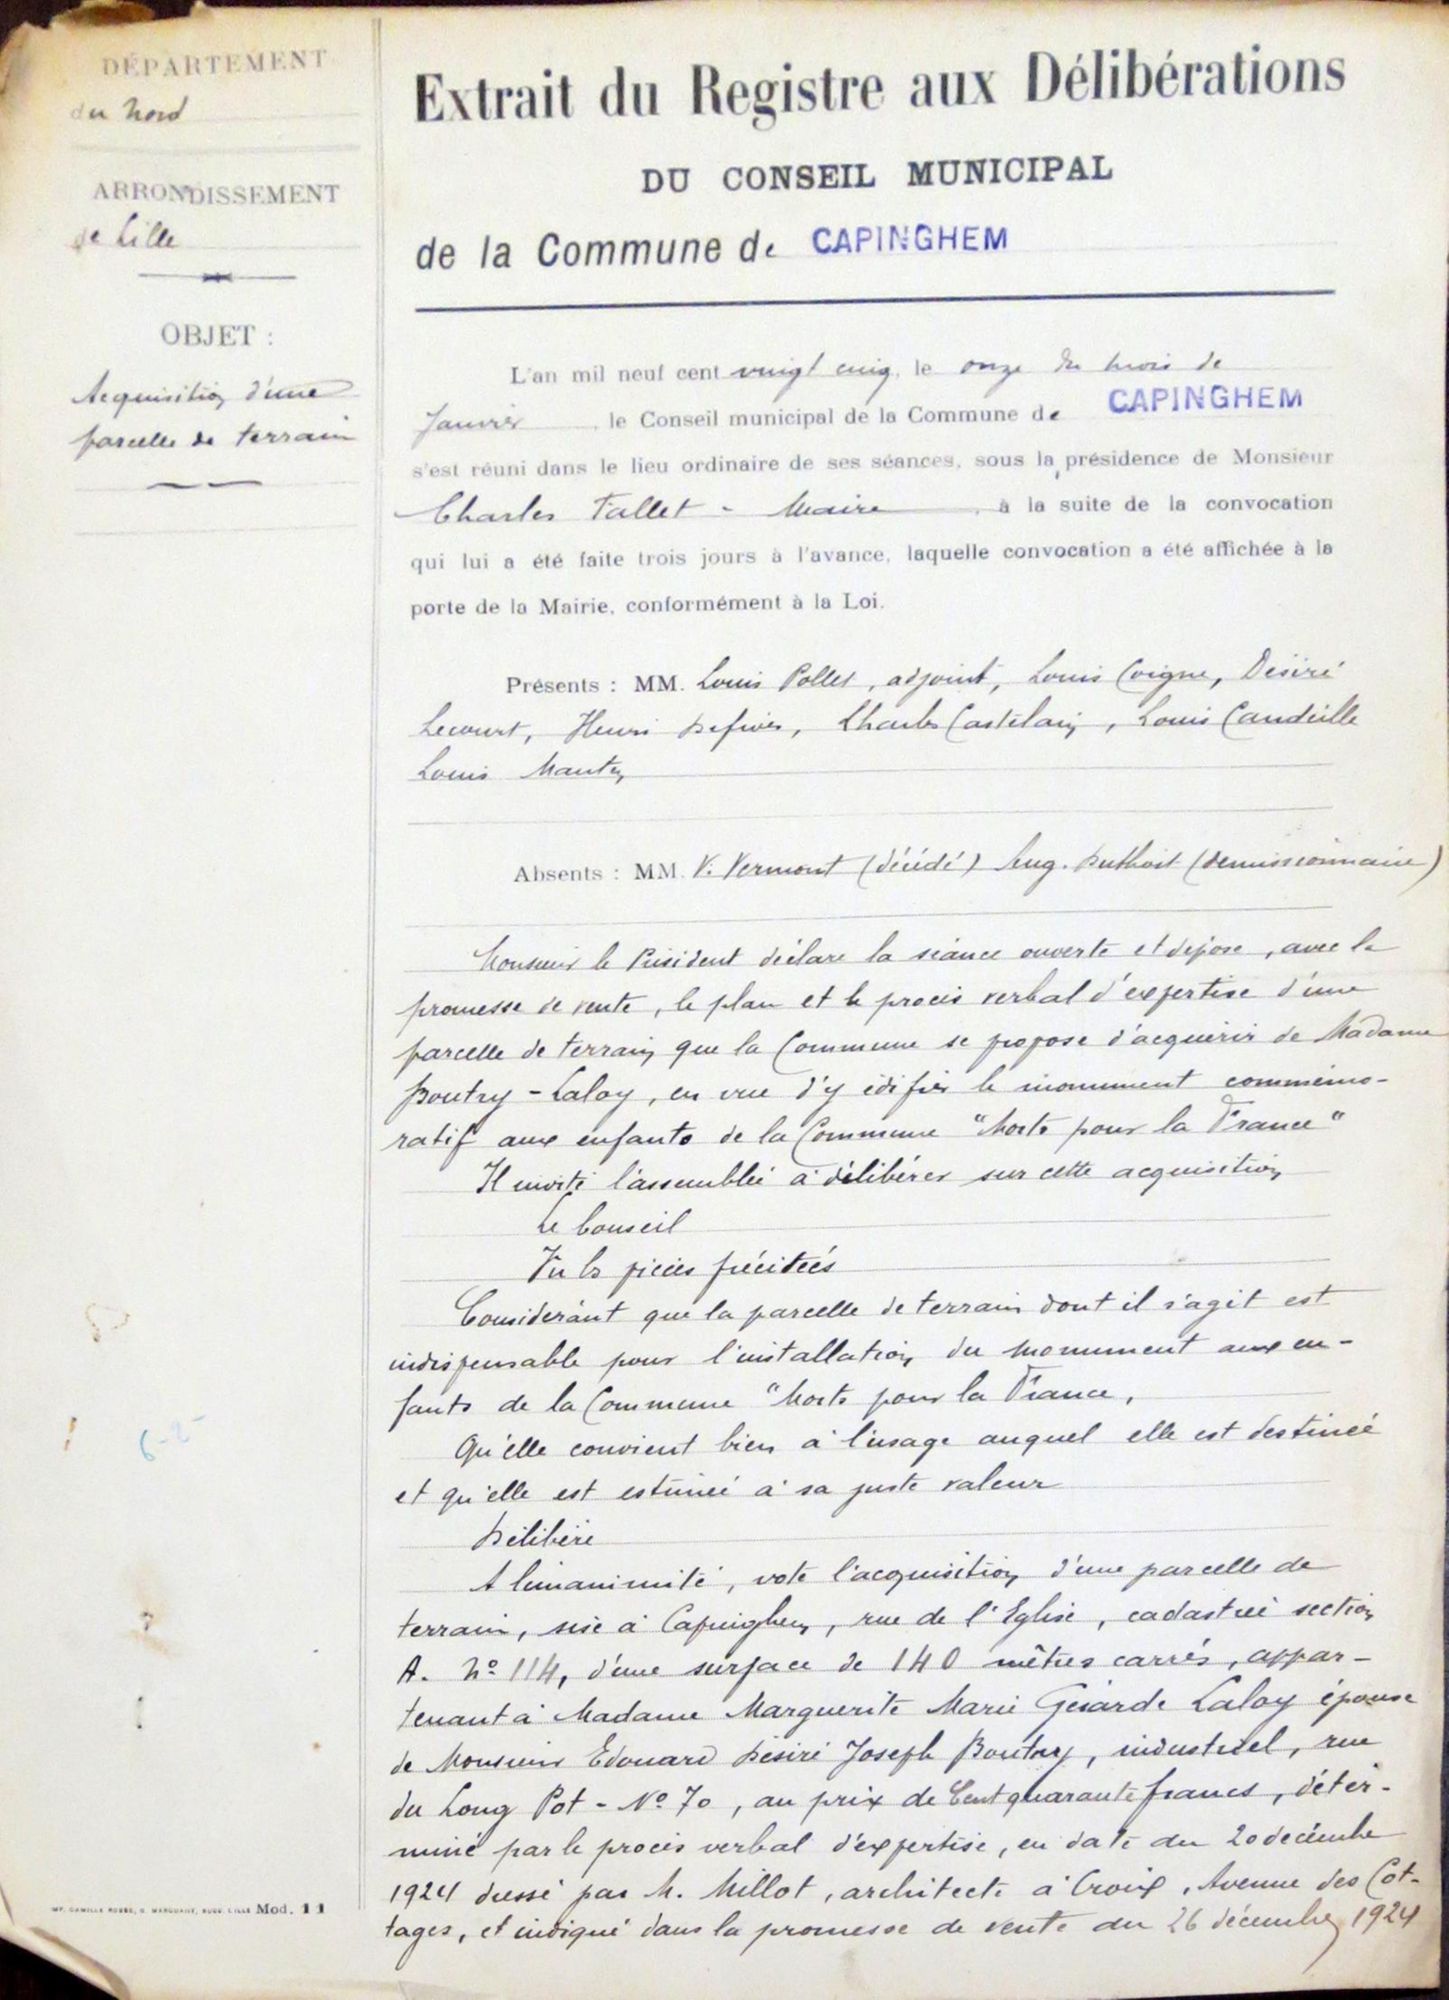 DÉPARTEMENT
du Nord
ARRONDISSEMENT
de Lille
OBJET :
Acquisition d'une
parcelle de terrain
Extrait du Registre aux Délibérations
DU CONSEIL MUNICIPAL
de la Commune de CAPINGHEM
L'an mil neuf cent vingt cinq, le onze du mois de
Janvier, le Conseil municipal de la Commune de CAPINGHEM
s'est réuni dans le lieu ordinaire de ses séances, sous la présidence de Monsieur
Charles Fallet - Maire, à la suite de la convocation
qui lui a été faite trois jours à l'avance, laquelle convocation a été affichée à la
porte de la Mairie, conformément à la Loi.
Présents : MM. Louis Pollet, adjoint, Louis Coigne, Désiré
Lecourt, Henri Defives, Charles Castelain, Louis Candeille
Louis
Absents : MM. V. Vermont (décédé) Aug. Duthoit (démissionnaire)
Monsieur le Président déclare la séance ouverte et dépose, avec la
promesse de vente, le plan et le procès verbal d'expertise d'une
parcelle de terrain que la Commune se propose d'acquérir de Madame
Boutry-Laloy, en vue d'y édifier le monument commémo-
ratif aux enfants de la Commune "Morts pour la France"
Il invite l'assemblée à délibérer sur cette acquisition
Le Conseil
Vu les pièces précitées
Considérant que la parcelle de terrain dont il s'agit est
indispensable pour l'installation du monument aux en-
fants de la Commune "Morts pour la France,
Qu'elle convient bien à l'usage auquel elle est destinée
et qu'elle est estimée à sa juste valeur
Délibère
A l'unanimité, vote l'acquisition d'une parcelle de
terrain, sise à Capinghem, rue de l'Eglise, cadastrée section
A. No 114, d'une surface de 140 mètres carrés, appar-
tenant à Madame Marguerite Marie Gérarde Laloy épouse
de Monsieur Edouard Désiré Joseph Boutry, industriel, rue
du Long Pot - No 70, au prix de Cent quarante francs, déter-
miné par le procès verbal d'expertise, en date du 20 décembre
1924 dressé par M. Millot, architecte à Croix, Avenue des Cot-
tages, et indiqué dans la promesse de vente du 26 décembre 1924
6-2-
Mod. 11